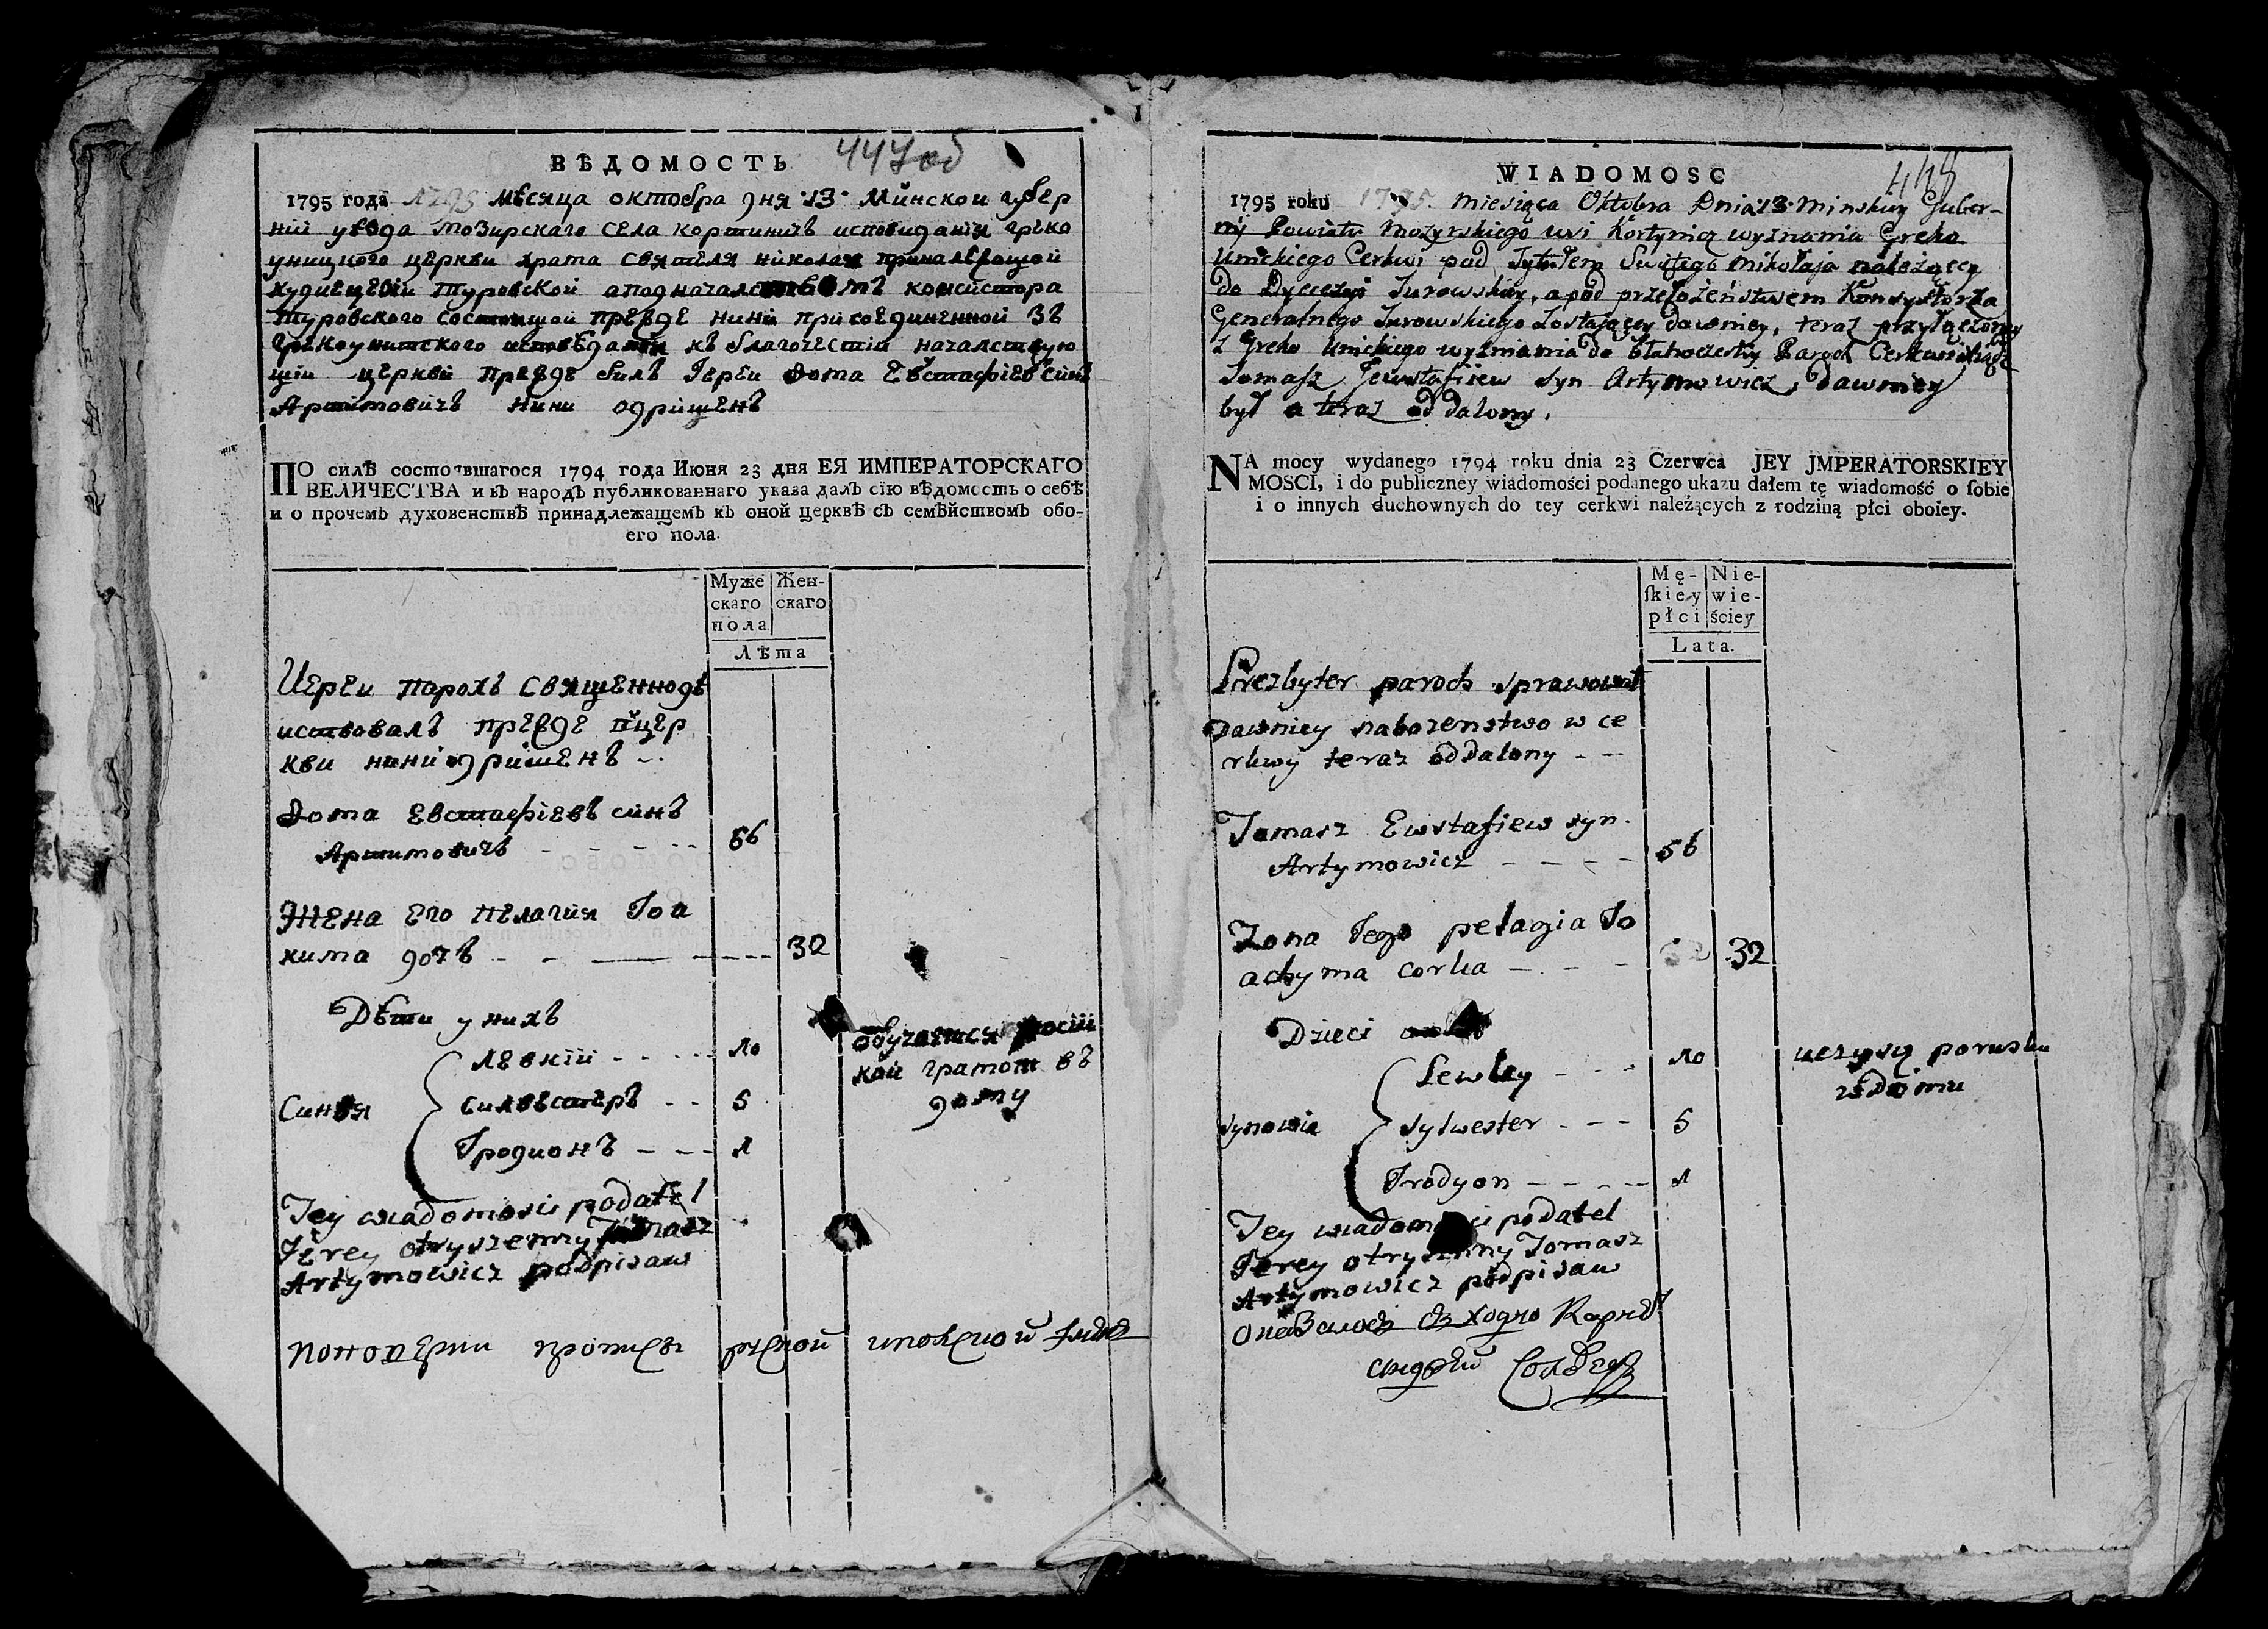 ВѢДОМОСТЬ 447 об
1795 года 1795 мѣсяца октобра дня 13 Минской губер
ний уѣзда Мозирскаго села Кортиничъ исповиданія греко
уницкого церкви храма святѣля Николая приналежащой
Туровской а под началствомъ консистора
Туровского состоящой прежде нини присоединенной зъ
грекоунитского исповѣданія къ благочестію началствую
щій церкви прежде билъ Іерей Фома Евстафіевъ синъ
Артимовичъ нини одришенъ
ПО силѣ состоявшагося 1794 года Июня 23 дня ЕЯ ИМПЕРАТОРСКАГО
ВЕЛИЧЕСТВА и въ народъ публикованнаго указа далъ сїю вѣдомость о себѣ
и о прочемъ духовенствѣ принадлежащемъ къ оной церквѣ съ семѣйствомъ обо-
его пола.
Муже Жен-
скаго скаго
пола
Лѣта
Иерей парохъ священнодѣ
иствовалъ прежде вцер
кви нини одришенъ
Фома Евстафіевъ синъ
Артимовичъ - - - - 56
Жена его Пелагия Іоа
кима дочъ - - - - 32
Дѣти у нихъ
Левкій - - - - 10 обучаются
Силвестеръ - - 5 кой грамот въ
Синвя дому
Іродионъ - - - 1
Tey wiadomosci podatel
Jerey otryszenny Tomasz
Artymowicz podpisaw
WIADOMOSC
1795 roku 1795. Miesiąca Oktobra Dnia 13 Minskiey Guber-
nij Powiatu Mozyrskiego wsi Kortynicz wyznania Greko
Unickiego Cerkwi pod Tytułem Swiętego Mikołaja należącey
do Dyecezyi Turowskiey, a pod przełożeństwem Konsystorza
Generalnego Turowskiego zostaiącey dawniey, teraz przyłączoney
z Greko Unickiego wyznania do Błahoczestij Paroch Cerkwi
Tomasz Jewstafiiew syn Artymowicz, dawniey
był a teraz oddalony.
NA mocy wydanego 1794 roku dnia 23 Czerwca JEY JMPERATORSKIEY
MOSCI, i do publiczney wiadomości podanego ukazu dałem tę wiadomość o sobie
i o innych duchownych do tey cerkwi należących z rodziną płci oboiey.
Mę- Nie-
skiey wie-
płci ściey
Lata.
Prezbyter paroch sprawował
dawniey nabozenstwo w ce
rkwy teraz oddalony - -
Tomasz Ewstafiew syn
Artymowicz - - - - 56
Zona Jego pelagia Jo
achyma corka - - - 32 32
Dzieci
Lewkey - - - 10 uczysię porusku
synowie Sylwester - - - 5 wdomu
Irodyon - - - - 1
Tey wiadomosci podatel
Jerey otryszenny Tomasz
Artymowicz podpisaw